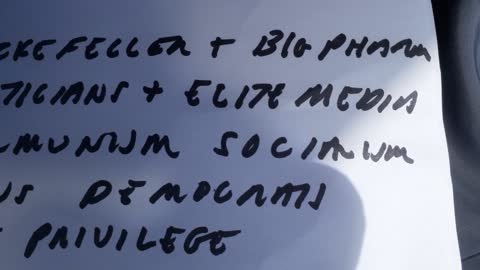 CKEFELLER + BIG PHARM
TICIANS + ELITE MEDIA
MUNISM SOCIALISM
US DEMOCRATS
PRIVILEGE